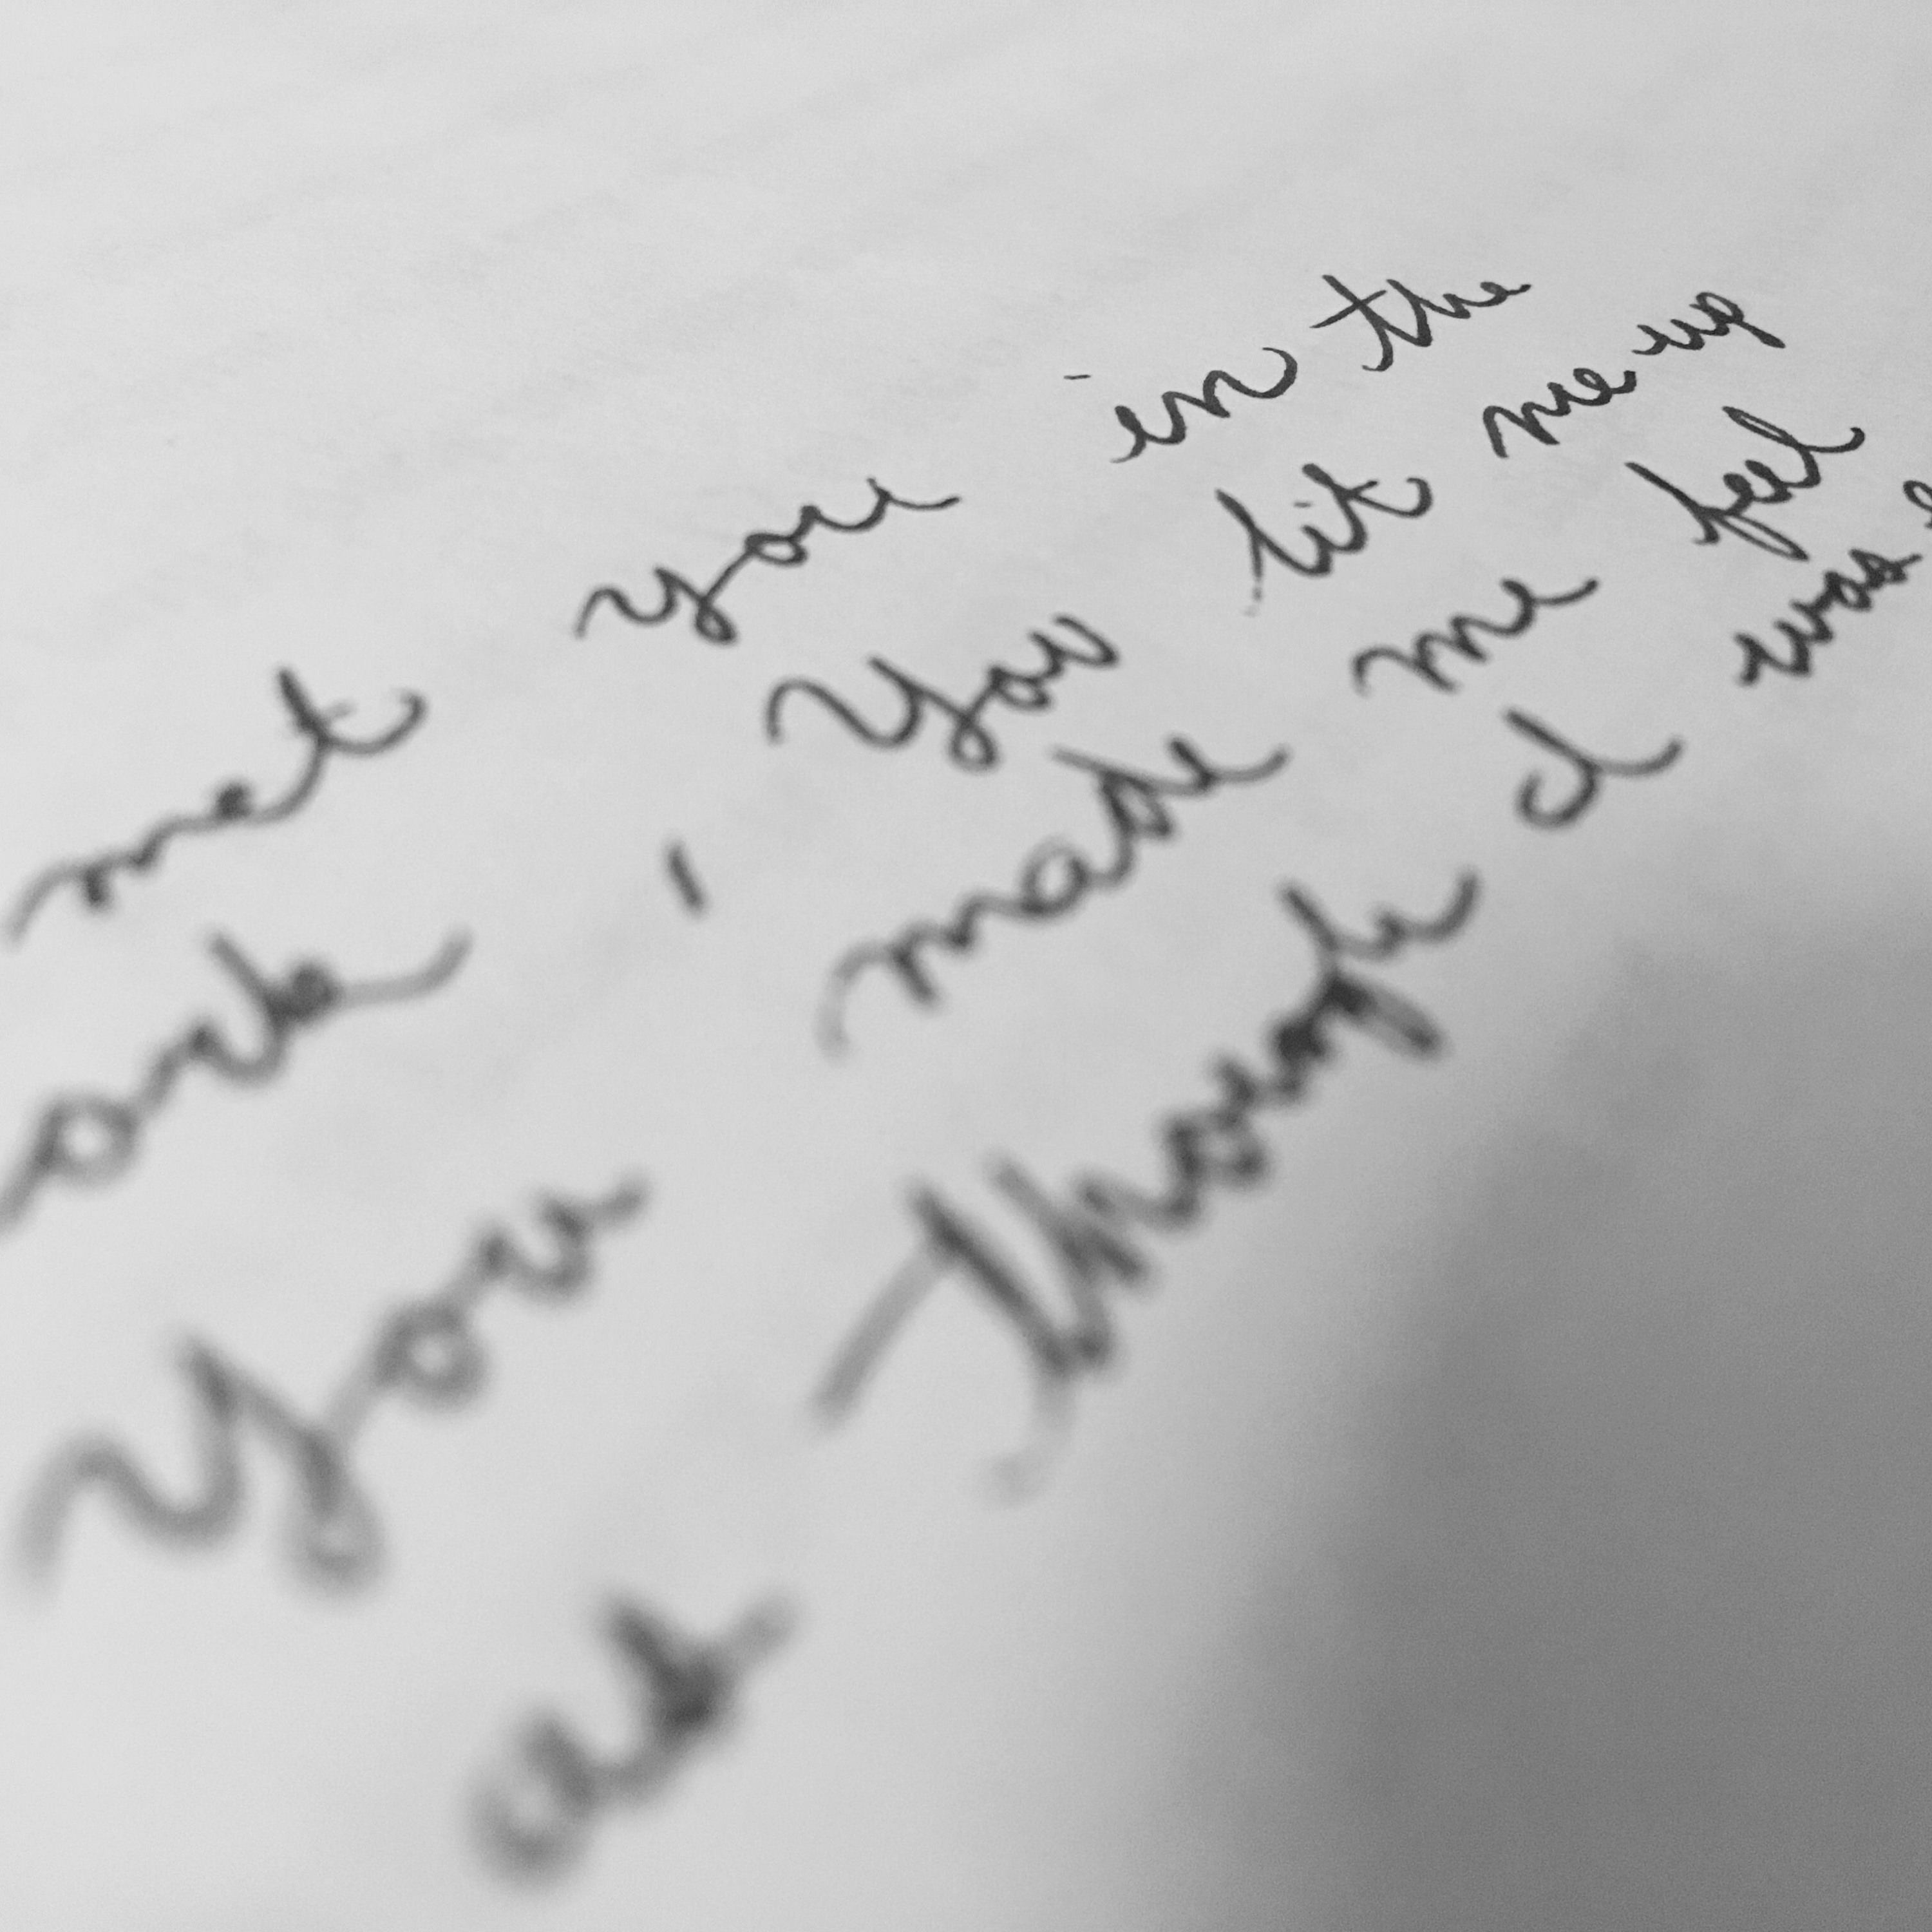 met you in the
ark, You lit me up
You made me feel
as though I was